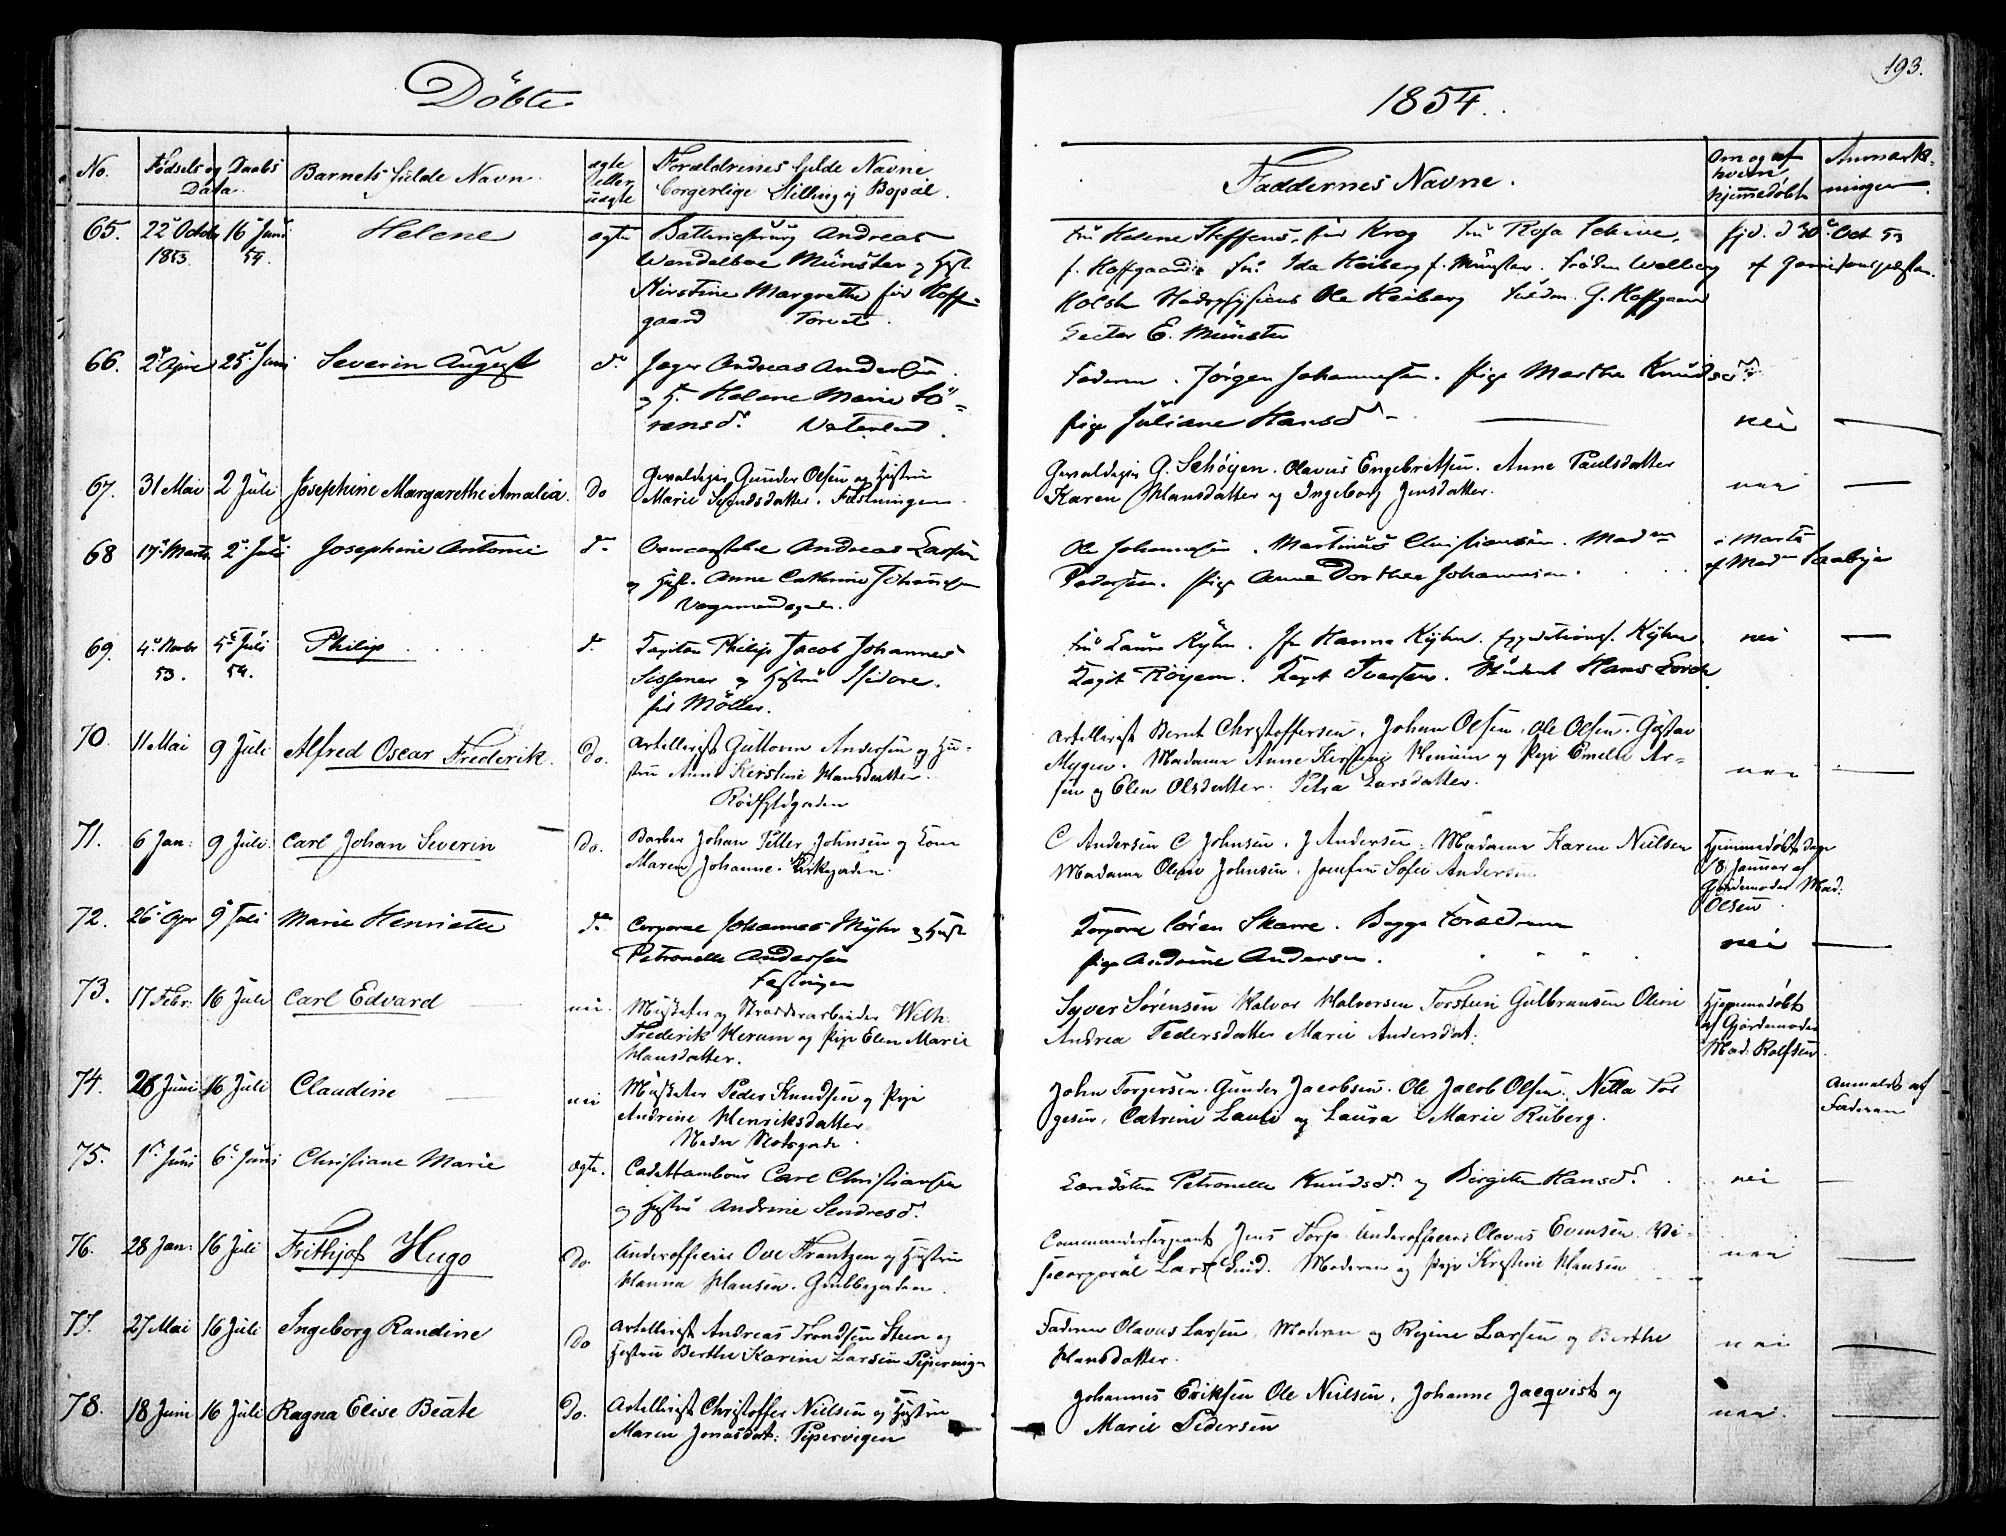 193.
Döbte 1854.
No. Födsels og Daabs Data. Barnets fulde Navn. ægte eller uægte Forældrenes fulde Navne borgerlige Stilling og Bopæl. Faddernes Navne. Om og af hvem hjemmedøbt Anmærkninger.
65. 22 Octob 1853. 16 Juni 54. Helene ægte Andreas
Wendelboe Münster og Hust.
Kirstine Margrethe før Hoff-
gaard Torvet.
Fru Helene Steffens, før Krog Fru Rosa
f. Hoffgaard. Fru Ida Heiberg f. Münster.
Ole Heiberg G. Hoffgaard
E. Münster
d 30 Oct 53
af
66. 2 Apr 25 Juni Severin August do Andreas Andersen
og H. Helene Marie Sö-
rensd. Vaterland.
Faderen. Jörgen Johannesen. Pige Marthe Knudsd.
Pige Juliane Hansd — nei —
67. 31 Mai 2 Juli Josephine Margarethe Amalia. Do Gevaldiger Gunder Olsen og Hustru
Marie Svendsdatter. Fæstningen.
Gevaldiger G. Schøyen. Olavus Engebretsen. Anne Paulsdatter
Karen Hansdatter og Ingeborg Jensdatter. nei —
68 17 Marts 2 Juli Josephine Antonie do Andreas Larsen
og Hust. Anne Cathrine Johannesen
Vognmandsgade.
Ole Johannesen. Martinus Christiansen. Madam
Pedersen. Pige Anne Dorthea Johannesen.
i Marts
af Madm Saabye
69. 4 Novbr 53. 5 Juli 54. Philip do Capitain Philip Jacob Johannes
Sissener og Hustru Isidore.
før Möller.
Fru Laura Kyhn. Jfr Hanna Kyhn. Kyhn
Capt Röyem. Capt Iversen. Student Hans nei —
70. 11 Mai 9 Juli Alfred Oscar Frederik. Do. Artillerist Guttorm Andersen og Hu-
stru Anne Kerstine Hansdatter.
Rödfyldgaden
Artillerist Bernt Christoffersen, Johan Olsen, Ole Olsen. Gustav
Mygen. Madame Anne Kirstine og Pige Emelie Ar-
sen og Elen Olsdatter. Petra Larsdatter. nei —
71. 6 Jan: 9 Juli. Carl Johan Severin — Do. Barber Johan Petter Johnsen og Kone
Maren Johanne. Kirkegaden.
C Andersen C Johnsen. J Andersen. Madame Karen Nielsen
Madame Oline Johnsen. Josefine Sofie Andersen
Hjemmedøbt
8 Januar af
Gjordemoder Mad.
Olsen.
72. 26 Apr 9 Juli Marie Henriette do Corporal Johannes Myhr og Hust
Petronelle Andersen
Fæstningen
Corporal Sören Skarre. Begge Forældrene
Pige Andrine Andersen. nei —
73. 17 Febr. 16 Juli Carl Edvard — nei. Musketer og Straedearbeider Welh.
Frederik Herum og Pige Elen Marie
Hansdatter.
Syver Sörensen Halvor Halvorsen Torsten Gulbransen Oline
Andrea Pedersdatter Marie Andersdat.
Hjemmedøbt
af Gjordemoder
Mad: Rolfsen.
74. 26 Juni 16 Juli Claudine — nei Musketer Peder Knudsen og Pige
Andrine Henriksdatter
Nedre Slotsgade.
John Torgersen. Gunder Jacobsen. Ole Jacob Olsen. Netta Tor
gesen, Catrine Lauli og Laura Marie Ruberg.
Anmeldt af
Faderen
75. 1 Juni 6 Juni Christiane Marie ægte. Cadettambour Carl Christiansen
og Hustru Andrine Sendresd.
Petronelle Knudsd. og Birgitte Hansd. nei —
76. 28 Jan: 16 Juli Frithjof Hugo Do. Underofficeer Ove Frantzen og Hustru
Hanna Hansen. Grubbegaden.
Commandersergeant Jens Torp. Underofficeer Olavus Evensen, Vi-
secorporal Lars Lund. Moderen og Pige Kristine Hansen nei —
77. 27 Mai 16 Juli Ingeborg Randine Do Artillerist Andreas Trondsen Steen og
Hustru Berthe Karine Larsen Pipervigen
Faderen Olavus Larsen, Moderen og Regine Larsen og Berthe
Hansdatter. nei —
78. 18 Juni 16 Juli Ragna Elise Beate Do. Artillerist Christoffer Nielsen og Hustru
Maren Jonasdat: Pipervigen
Johannes Eriksen Ole Nielsen, Johanne Jacqvist og
Marie Pedersen nei. —